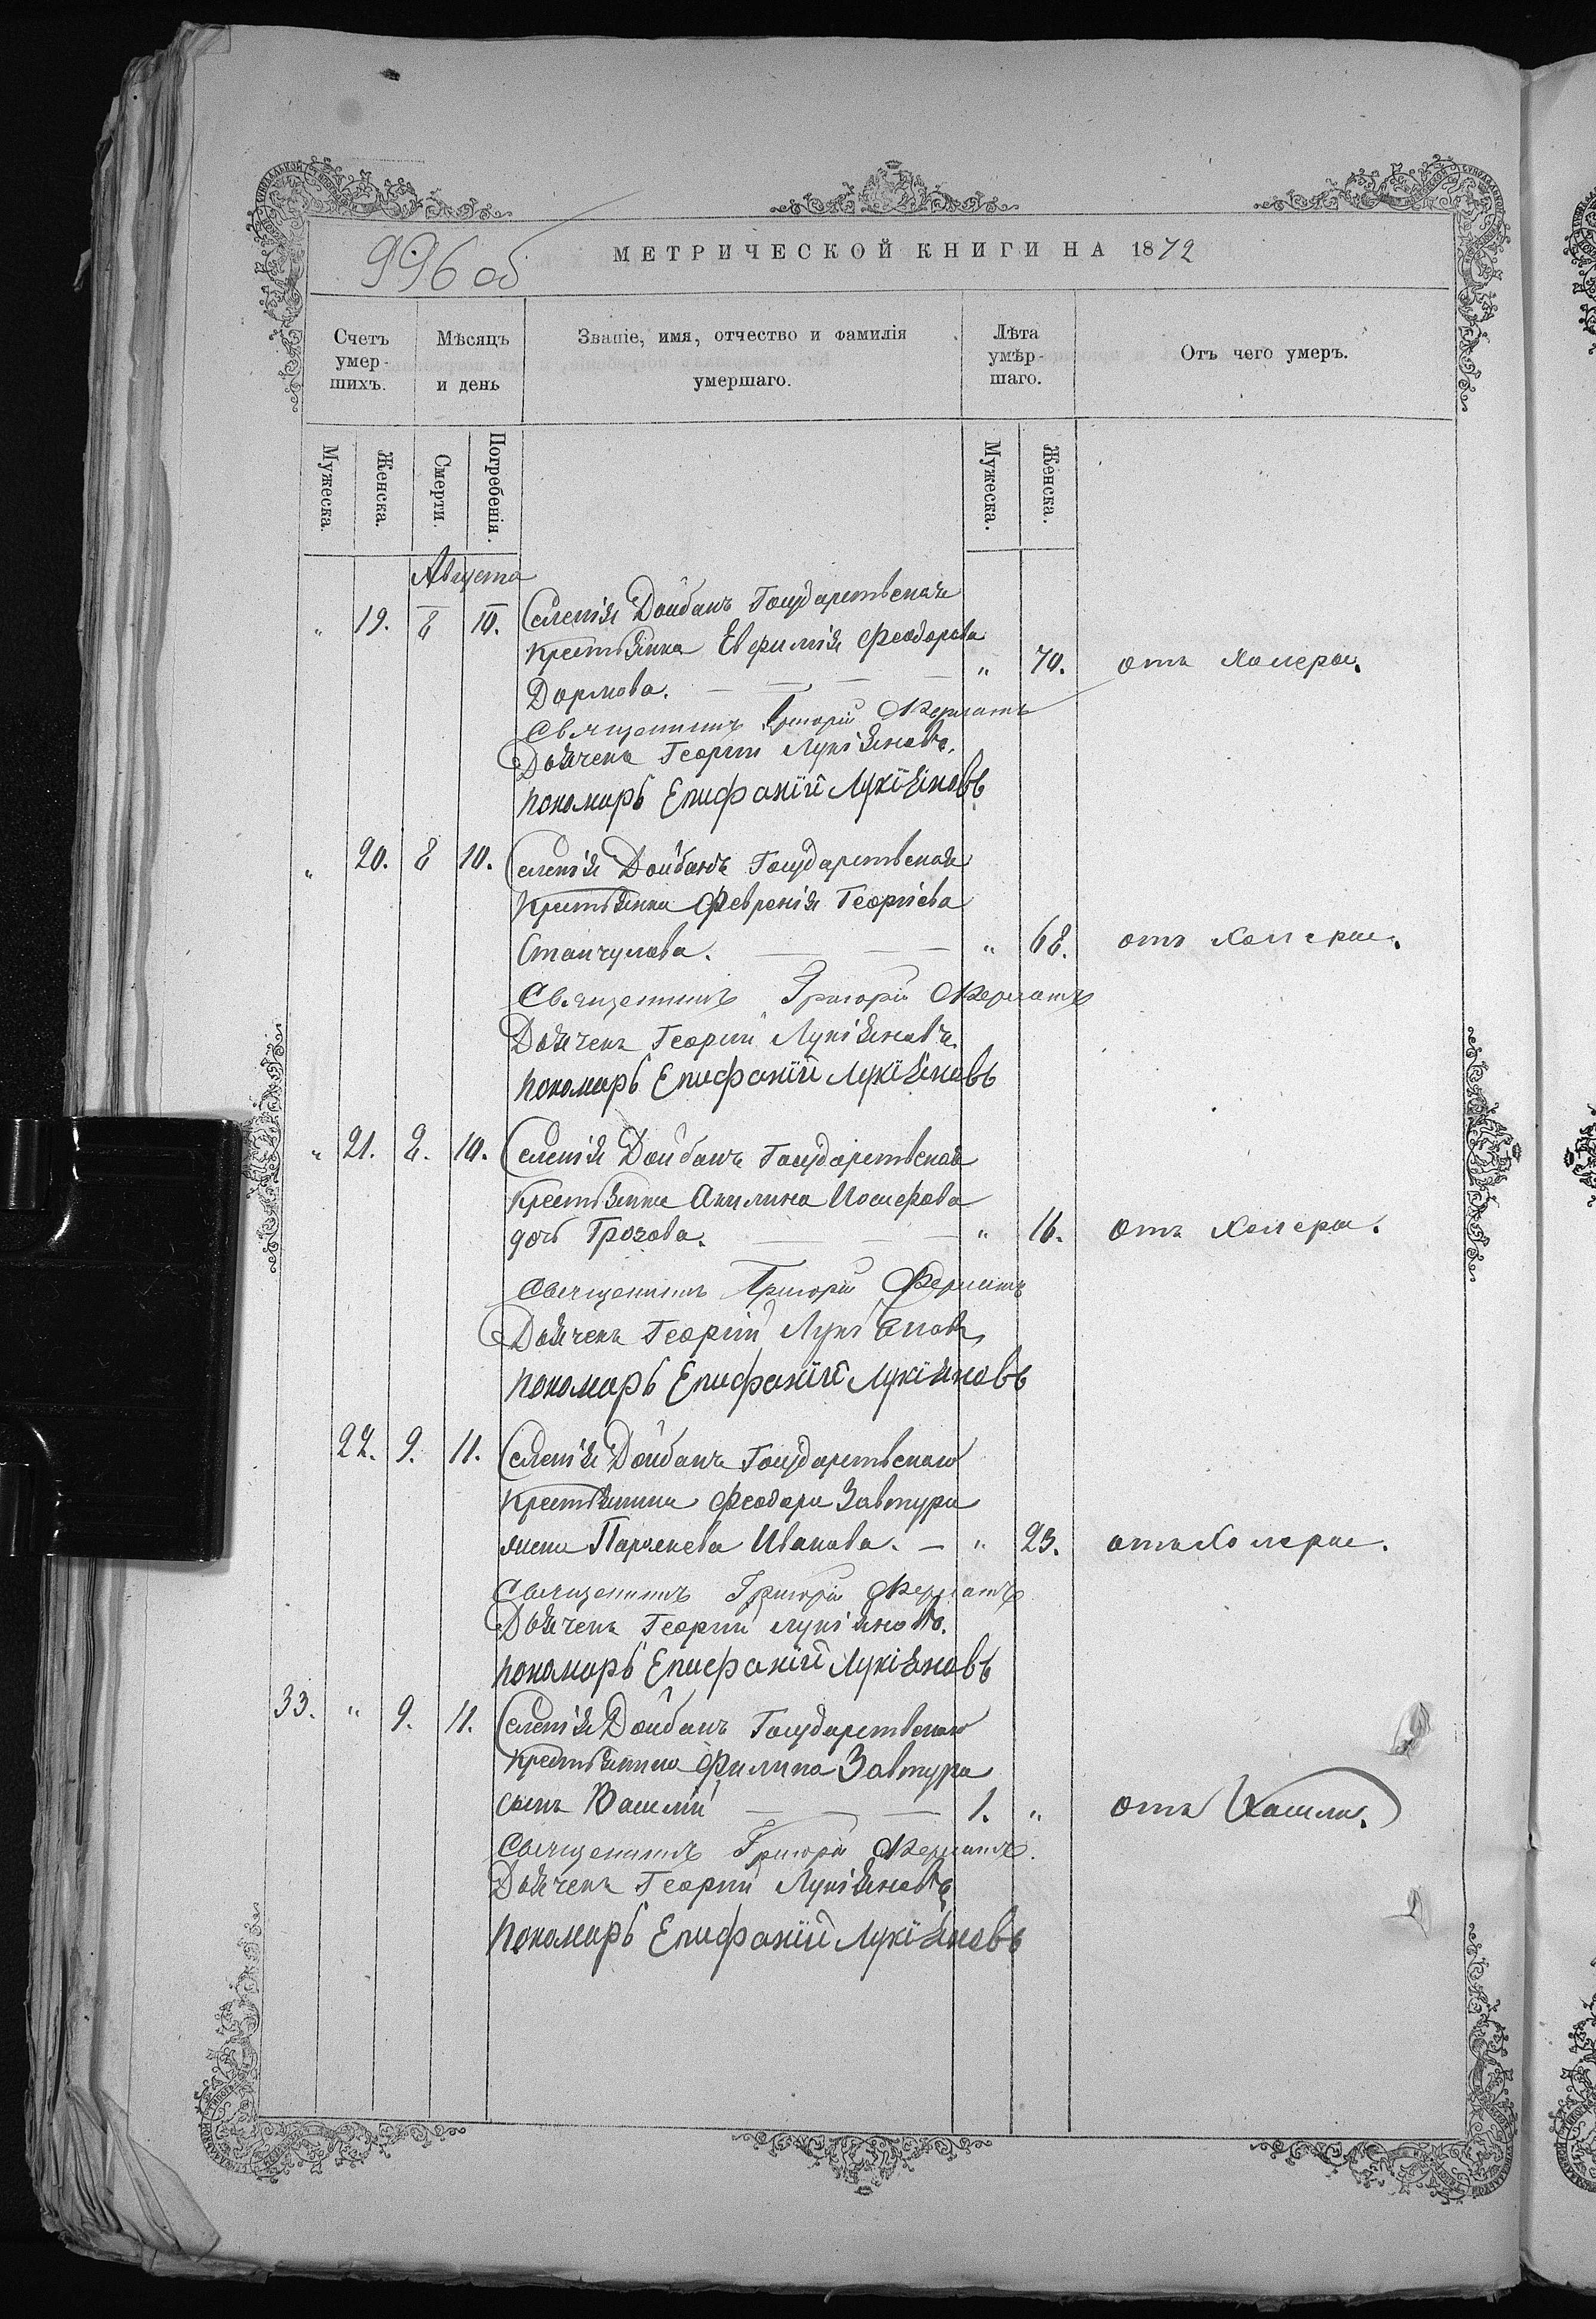 996 об
МЕТРИЧЕСКОЙ КНИГИ НА 1872
Счетъ умер-шихъ.
Мѣсяцъ и день
Званіе, имя, отчество и фамилія умершаго.
Лѣта умѣр-шаго.
Отъ чего умеръ.
Мужеска.
Женска.
Смерти.
Погребенія.
Мужеска.
Женска.
Августа
" 19. 8 10. Селенія Дойбанъ Государственая
крестьянка Евфимія Феодорова
Дормова. " 70. отъ холеры.
Священникъ Григорій
Дьячекъ Георгій Лукіяновъ.
пономарь Епифаній Лукіяновъ
" 20. 8 10. Селенія Дойбанъ Государственая
крестьянка Февренія Георгіева
Станчулова. " 68. отъ холеры.
Священникъ Григорій
Дьячекъ Георгій Лукіяновъ
пономарь Епифаній Лукіяновъ
" 21. 8. 10. Селенія Дойбанъ Государственая
крестьянка Акилина Иосифова
дочь Грозова. " 16. отъ холеры.
Священникъ Григорій
Дьячекъ Георгій Лукіяновъ
пономарь Епифаній Лукіяновъ
22. 9. 11. Селенія Дойбанъ Государственаго
крестьянина Феодора Завтура
жена Параскева Иванова. " 23. отъ холеры.
Священникъ Григорій
Дьячекъ Георгій Лукіяновъ.
пономарь Епифаній Лукіяновъ
33. " 9. 11. Селенія Дойбанъ Государственаго
крестьянина Филипа Завтура
сынъ Василій 1. " отъ Кашли.
Священникъ Григорій
Дьячекъ Георгій Лукіяновъ
пономарь Епифаній Лукіяновъ